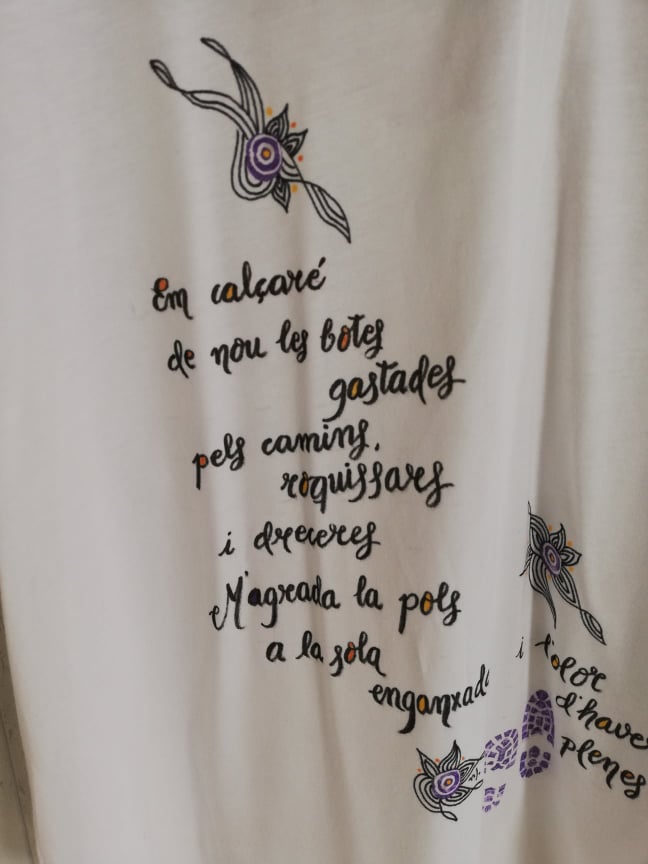 Em calçaré
de nou les botes
gastades
pels camins,
roquissars
i dreceres
M'agrada la pols
a la sola
enganxada
i l'olor
d'haver
plenes